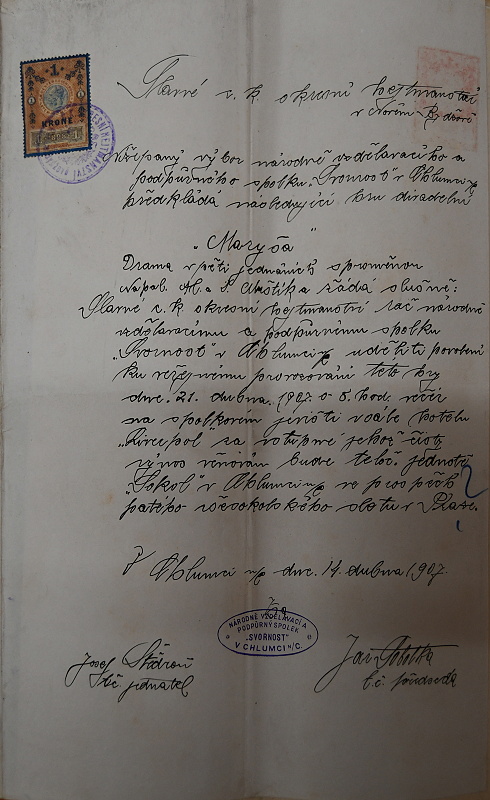 1
KRONE
Slavné c. k. okresní hejtmanství
v Novém Bydžově
výbor národně vzdělavacího a
podpůrného spolku „Svornost" v Chlumci n/c
předkládá následující hru divadelní
„Maryša"
Drama v pěti jednáních s proměnou
napsali A. a V. Mrštík a žádá slušně:
Slavné c. k. okresní hejtmanství rač národně
vzdělavacímu a podpůrnému spolku
„Svornost" v Chlumci n/c uděliti povolení
ku veřejnému provozování této hry
dne. 21. dubna. 1907. o 8. hod. večer
na spolkovém jevišti v sále hotelu
za vstupné jehož čistý
výnos věnován bude těloc. jednotě
„Sokol" v Chlumci n/c ve prospěch
pátého všesokolského sletu v Praze.
V Chlumci n/c dne. 14. dubna 1907.
NÁRODNĚ VZDĚLAVACÍ A
PODPŮRNÝ SPOLEK
„SVORNOST"
V CHLUMCI N/C.
Josef
t. č. jednatel
Jan Sobotka
t. č. předseda